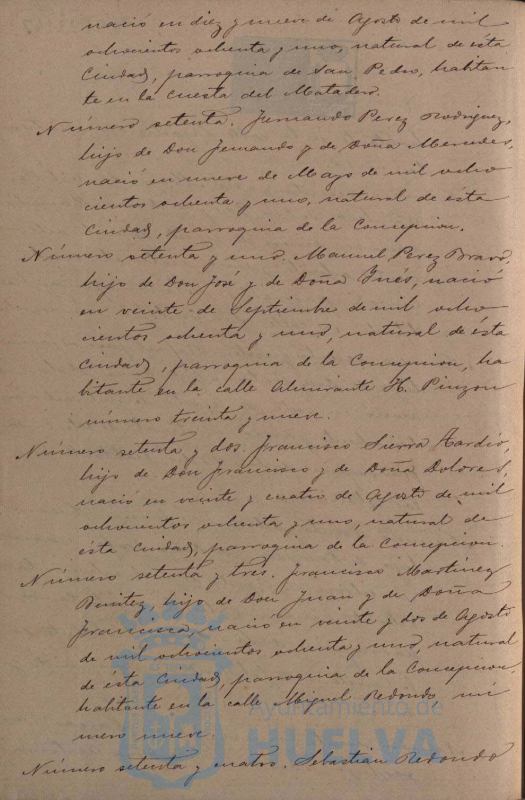 nació en diez y nueve de Agosto de mil
ochocientos ochenta y uno, natural de ésta
Ciudad, parroquia de San Pedro, habitan
te en la Cuesta del Matadero.
Número setenta. Fernando Perez Rodriguez,
hijo de Don Fernando y de Doña Mercedes,
nació en nueve de Mayo de mil ocho
cientos ochenta y uno, natural de esta
Ciudad, parroquia de la Concepcion.
Número setenta y uno. Manuel Perez Bravo,
hijo de Don José y de Doña Inés, nació
en veinte de Septiembre de mil ocho
cientos ochenta y uno, natural de ésta
Ciudad, parroquia de la Concepcion, ha
bitante en la calle Almirante H. Pinzon
número treinta y nueve.
Número setenta y dos. Francisco Sierra Tardío,
hijo de Don Francisco y de Doña Dolores,
nació en veinte y cuatro de Agosto de mil
ochocientos ochenta y uno, natural de
ésta Ciudad, parroquia de la Concepcion.
Número setenta y tres. Francisco Martinez
Benitez, hijo de Don Juan y de Doña
Francisca, nació en veinte y dos de Agosto
de mil ochocientos ochenta y uno, natural
de esta Ciudad, parroquia de la Concepcion,
habitante en la calle Miguel Redondo nú
mero nueve.
Número setenta y cuatro. Sebastian Redondo
Ayuntamiento de
HUELVA